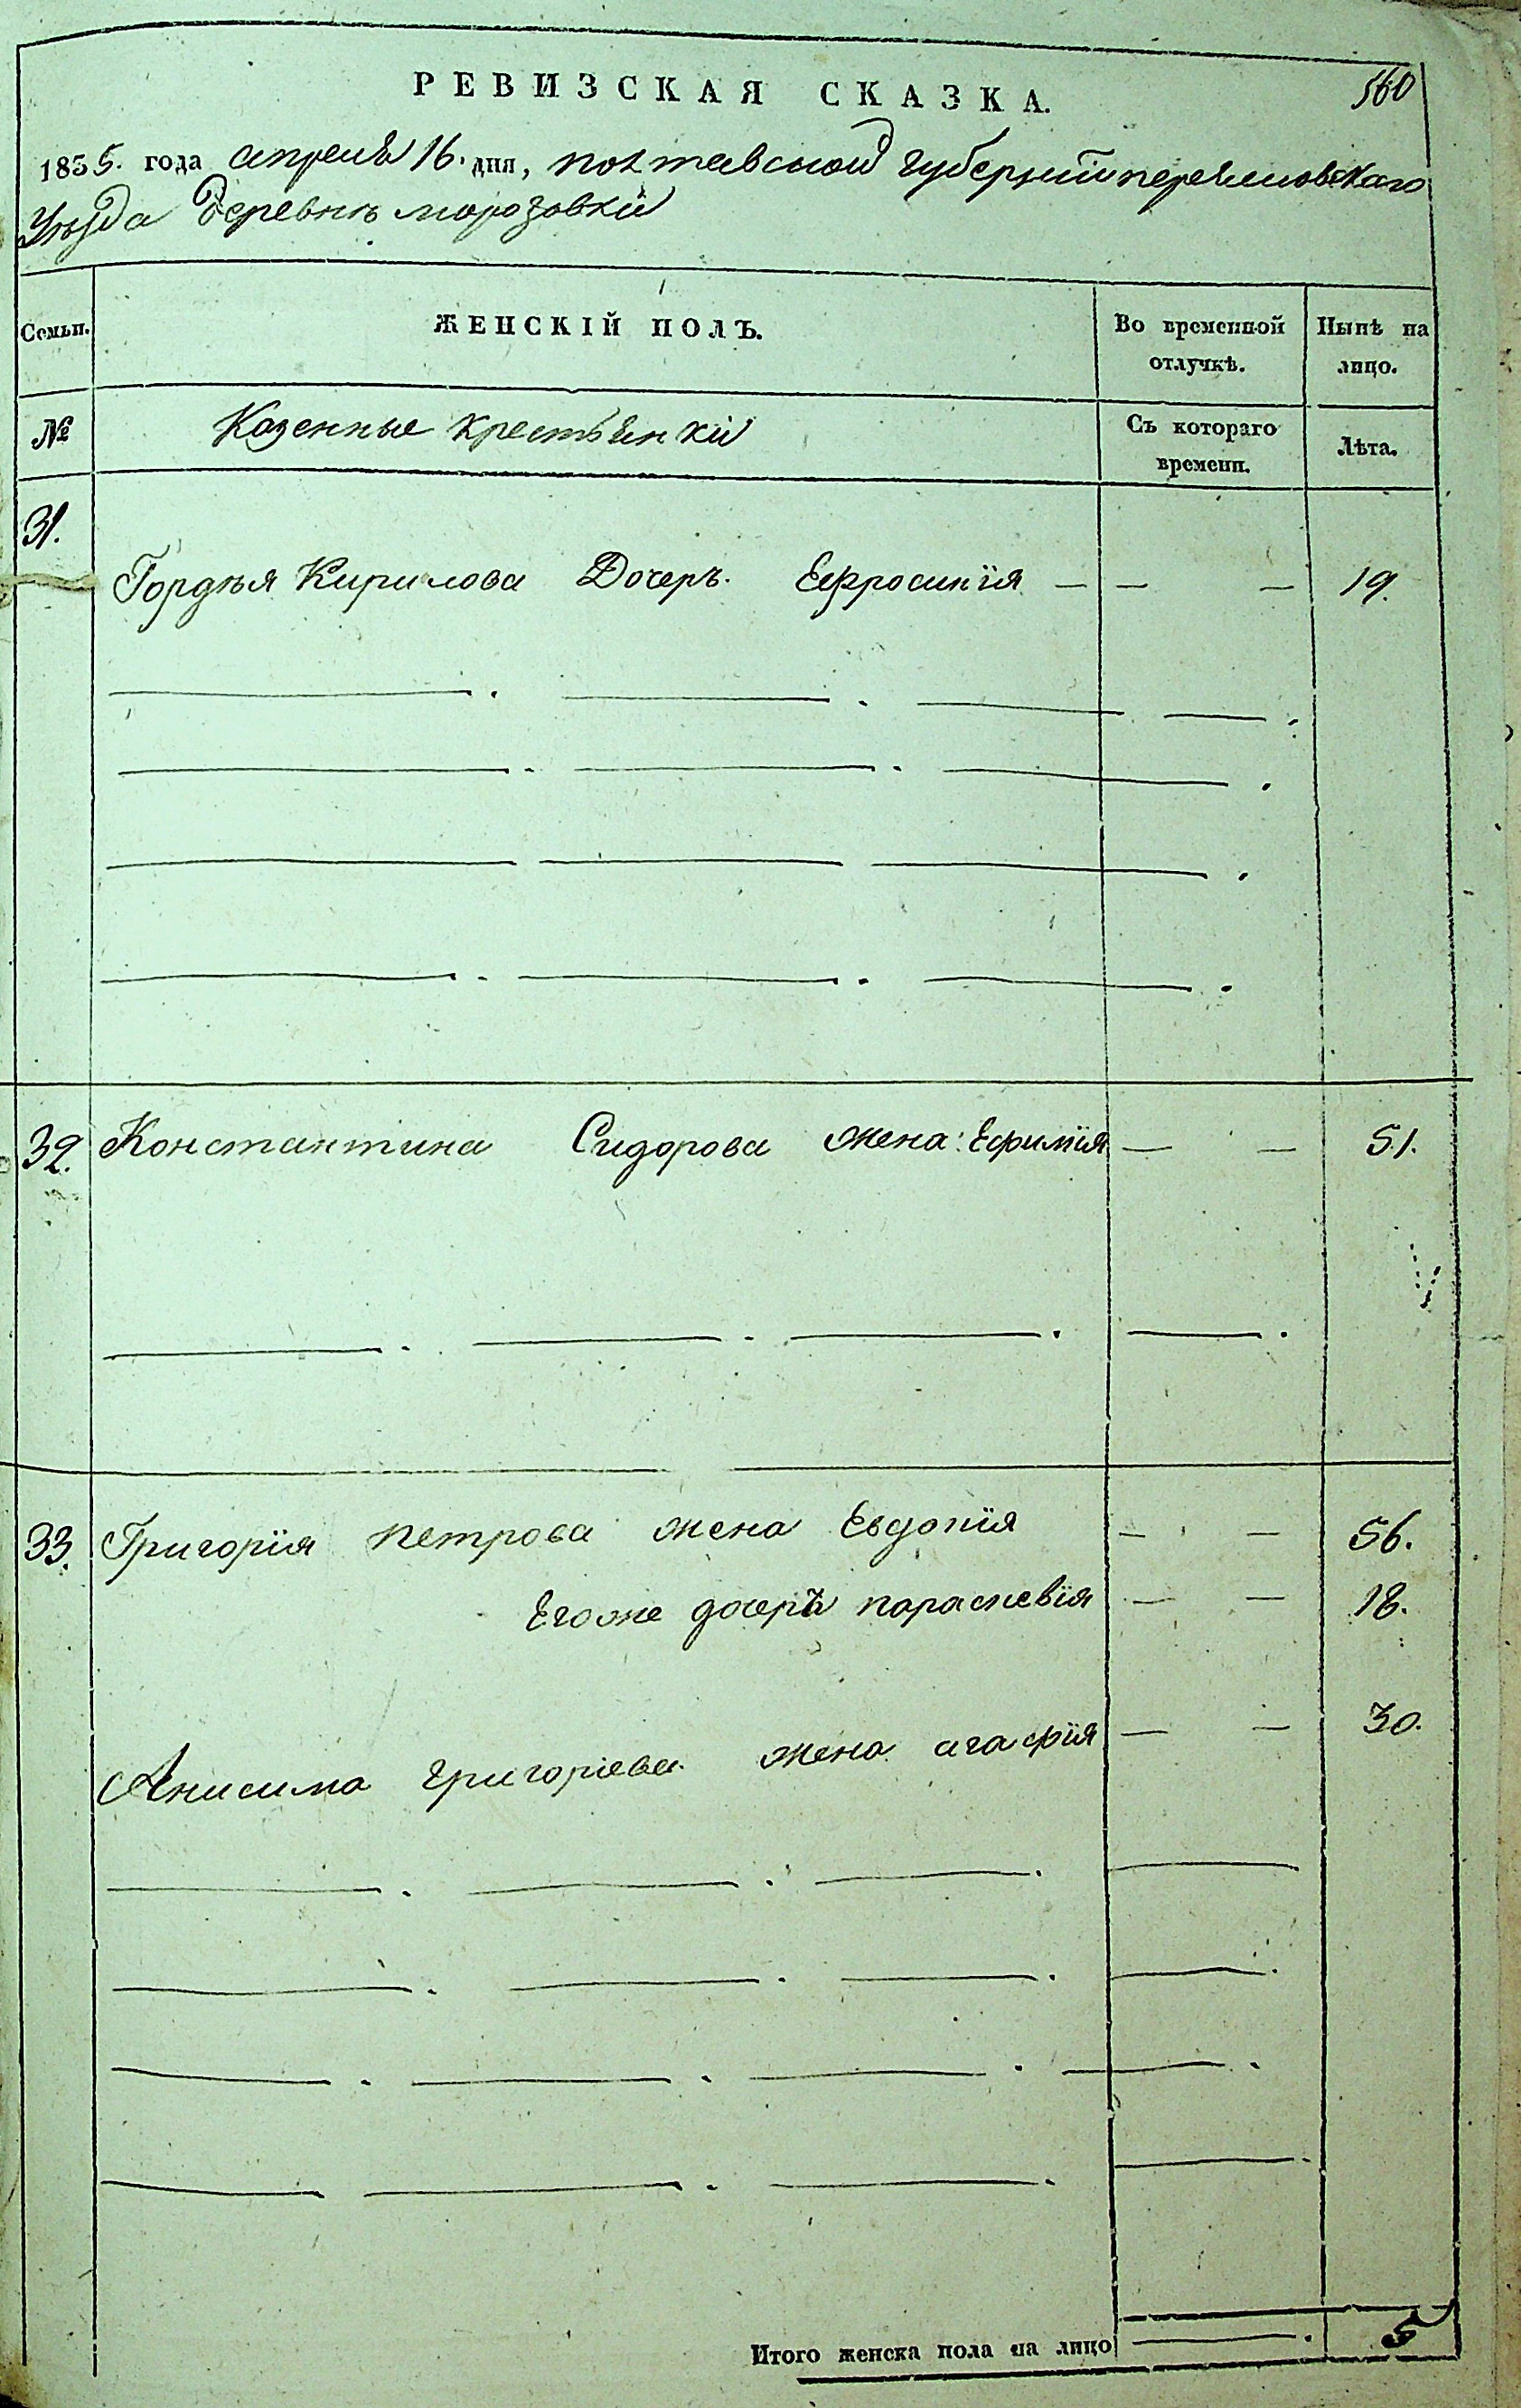 РЕВИЗСКАЯ СКАЗКА.
560
1835. года апреля 16. дня, полтавской губернїи переяловскаго
Уѣзда Деревнѣ морозовкй
Семьи.
ЖЕНСКІЙ ПОЛЪ.
Во временной отлучкѣ.
Нынѣ на лицо.
№
Казенные крестьянкй
Съ котораго времени.
Лѣта.
31.
Гордѣя Кирилова Дочерь. Ефросинїя — — — 19.
32. Константина Сидорова жена: Ефимїя — — 51.
33. Григорїя петрова жена Евдокїя — — 56.
Егоже дочерь параскевїя — — 18.
Анисима григорїева жена агафїя — — 30.
Итого женска пола на лицо — 5